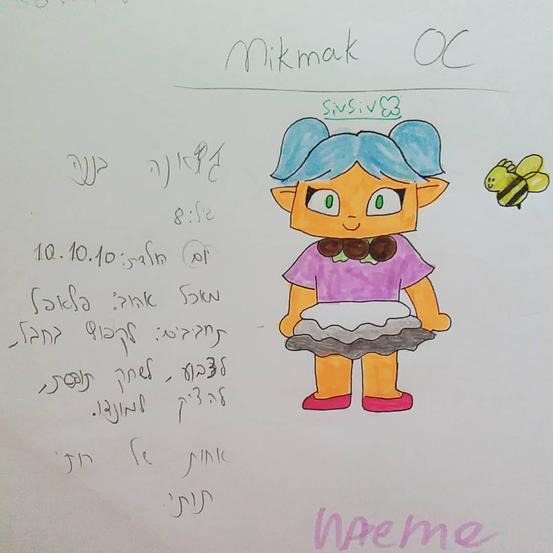 Mikmak OC
sivsiv
בננה
גיל: 8
יום הולדת: 10.10.10
מאכל אהוב: פלאפל
תחביבים: לקפוץ בחבל,
לצבוע, לשחק תופסת,
אחות של רותי
תותי.
Naeme